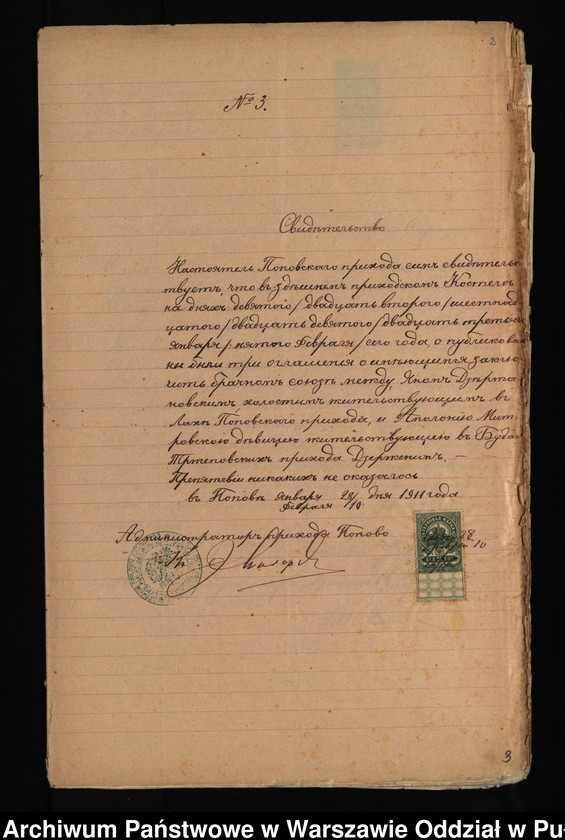 2
№ 3.
Свидѣтельство
Настоятель Поповскаго прихода симъ свидѣтельс
твуетъ, что въ здѣшнемъ приходскомъ Костелѣ
на дняхъ девятого /двадцать второго/ шестнад
цатого /двадцать девятого/ двадцать третьяго
Января /: пятого Февраля/ сего года, опубликова
ны были три оглашенія о имѣющимся заклю
чить брачномъ союзѣ между, Яномъ Дзержа
новскимъ холостымъ жительствующимъ въ
Поповскаго прихода, и Аполоніею
ровскою дѣвицею жительствующею въ Будах
прихода Дзерженинъ. —
Препятствій никакихъ не оказалось
въ Поповѣ Января 28/10 дня 1911 года
Февраля
Администраторъ прихода Попово
28
10
3
Archiwum Państwowe w Warszawie Oddział w Pu